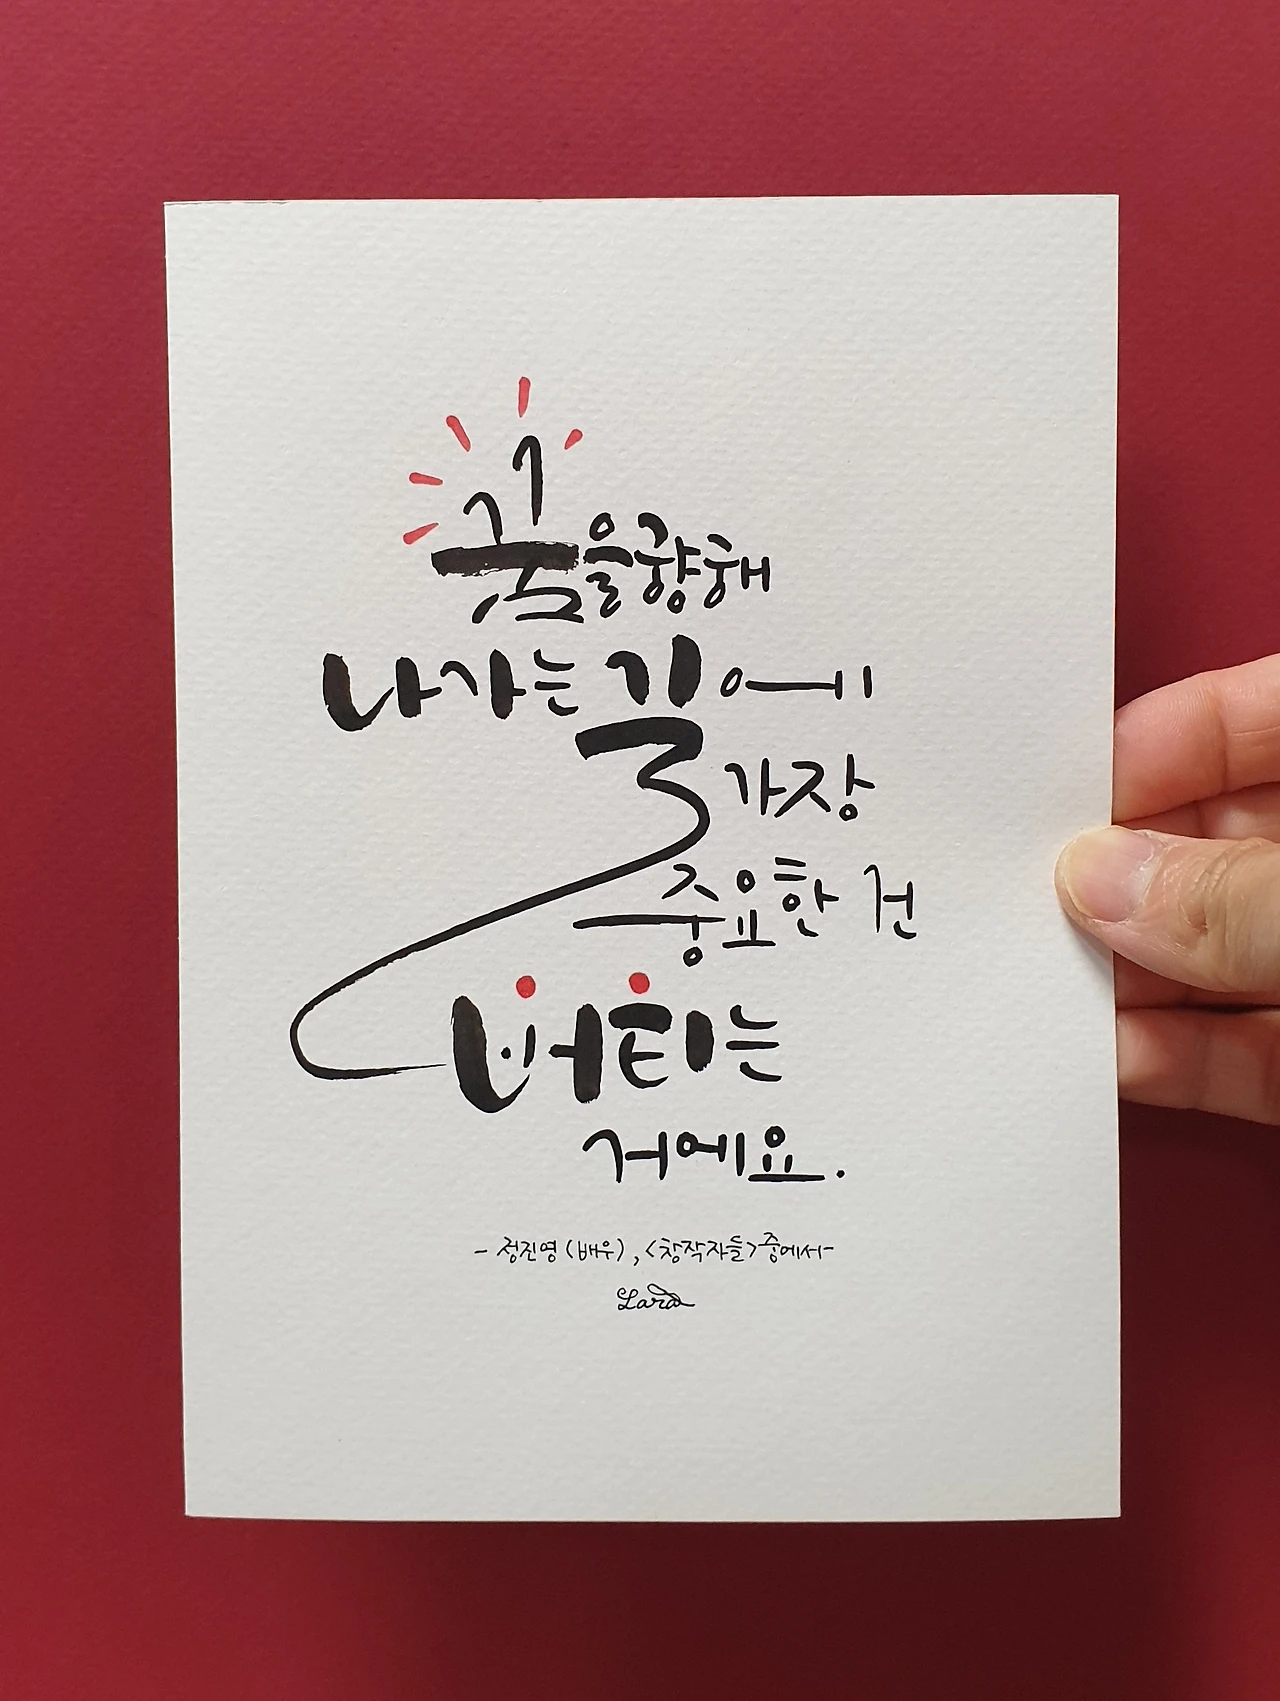 꿈을향해
나가는 길에
가장
중요한 건
버티는
거에요.
- 정진영 (배우), <창작자들> 중에서-
Lara